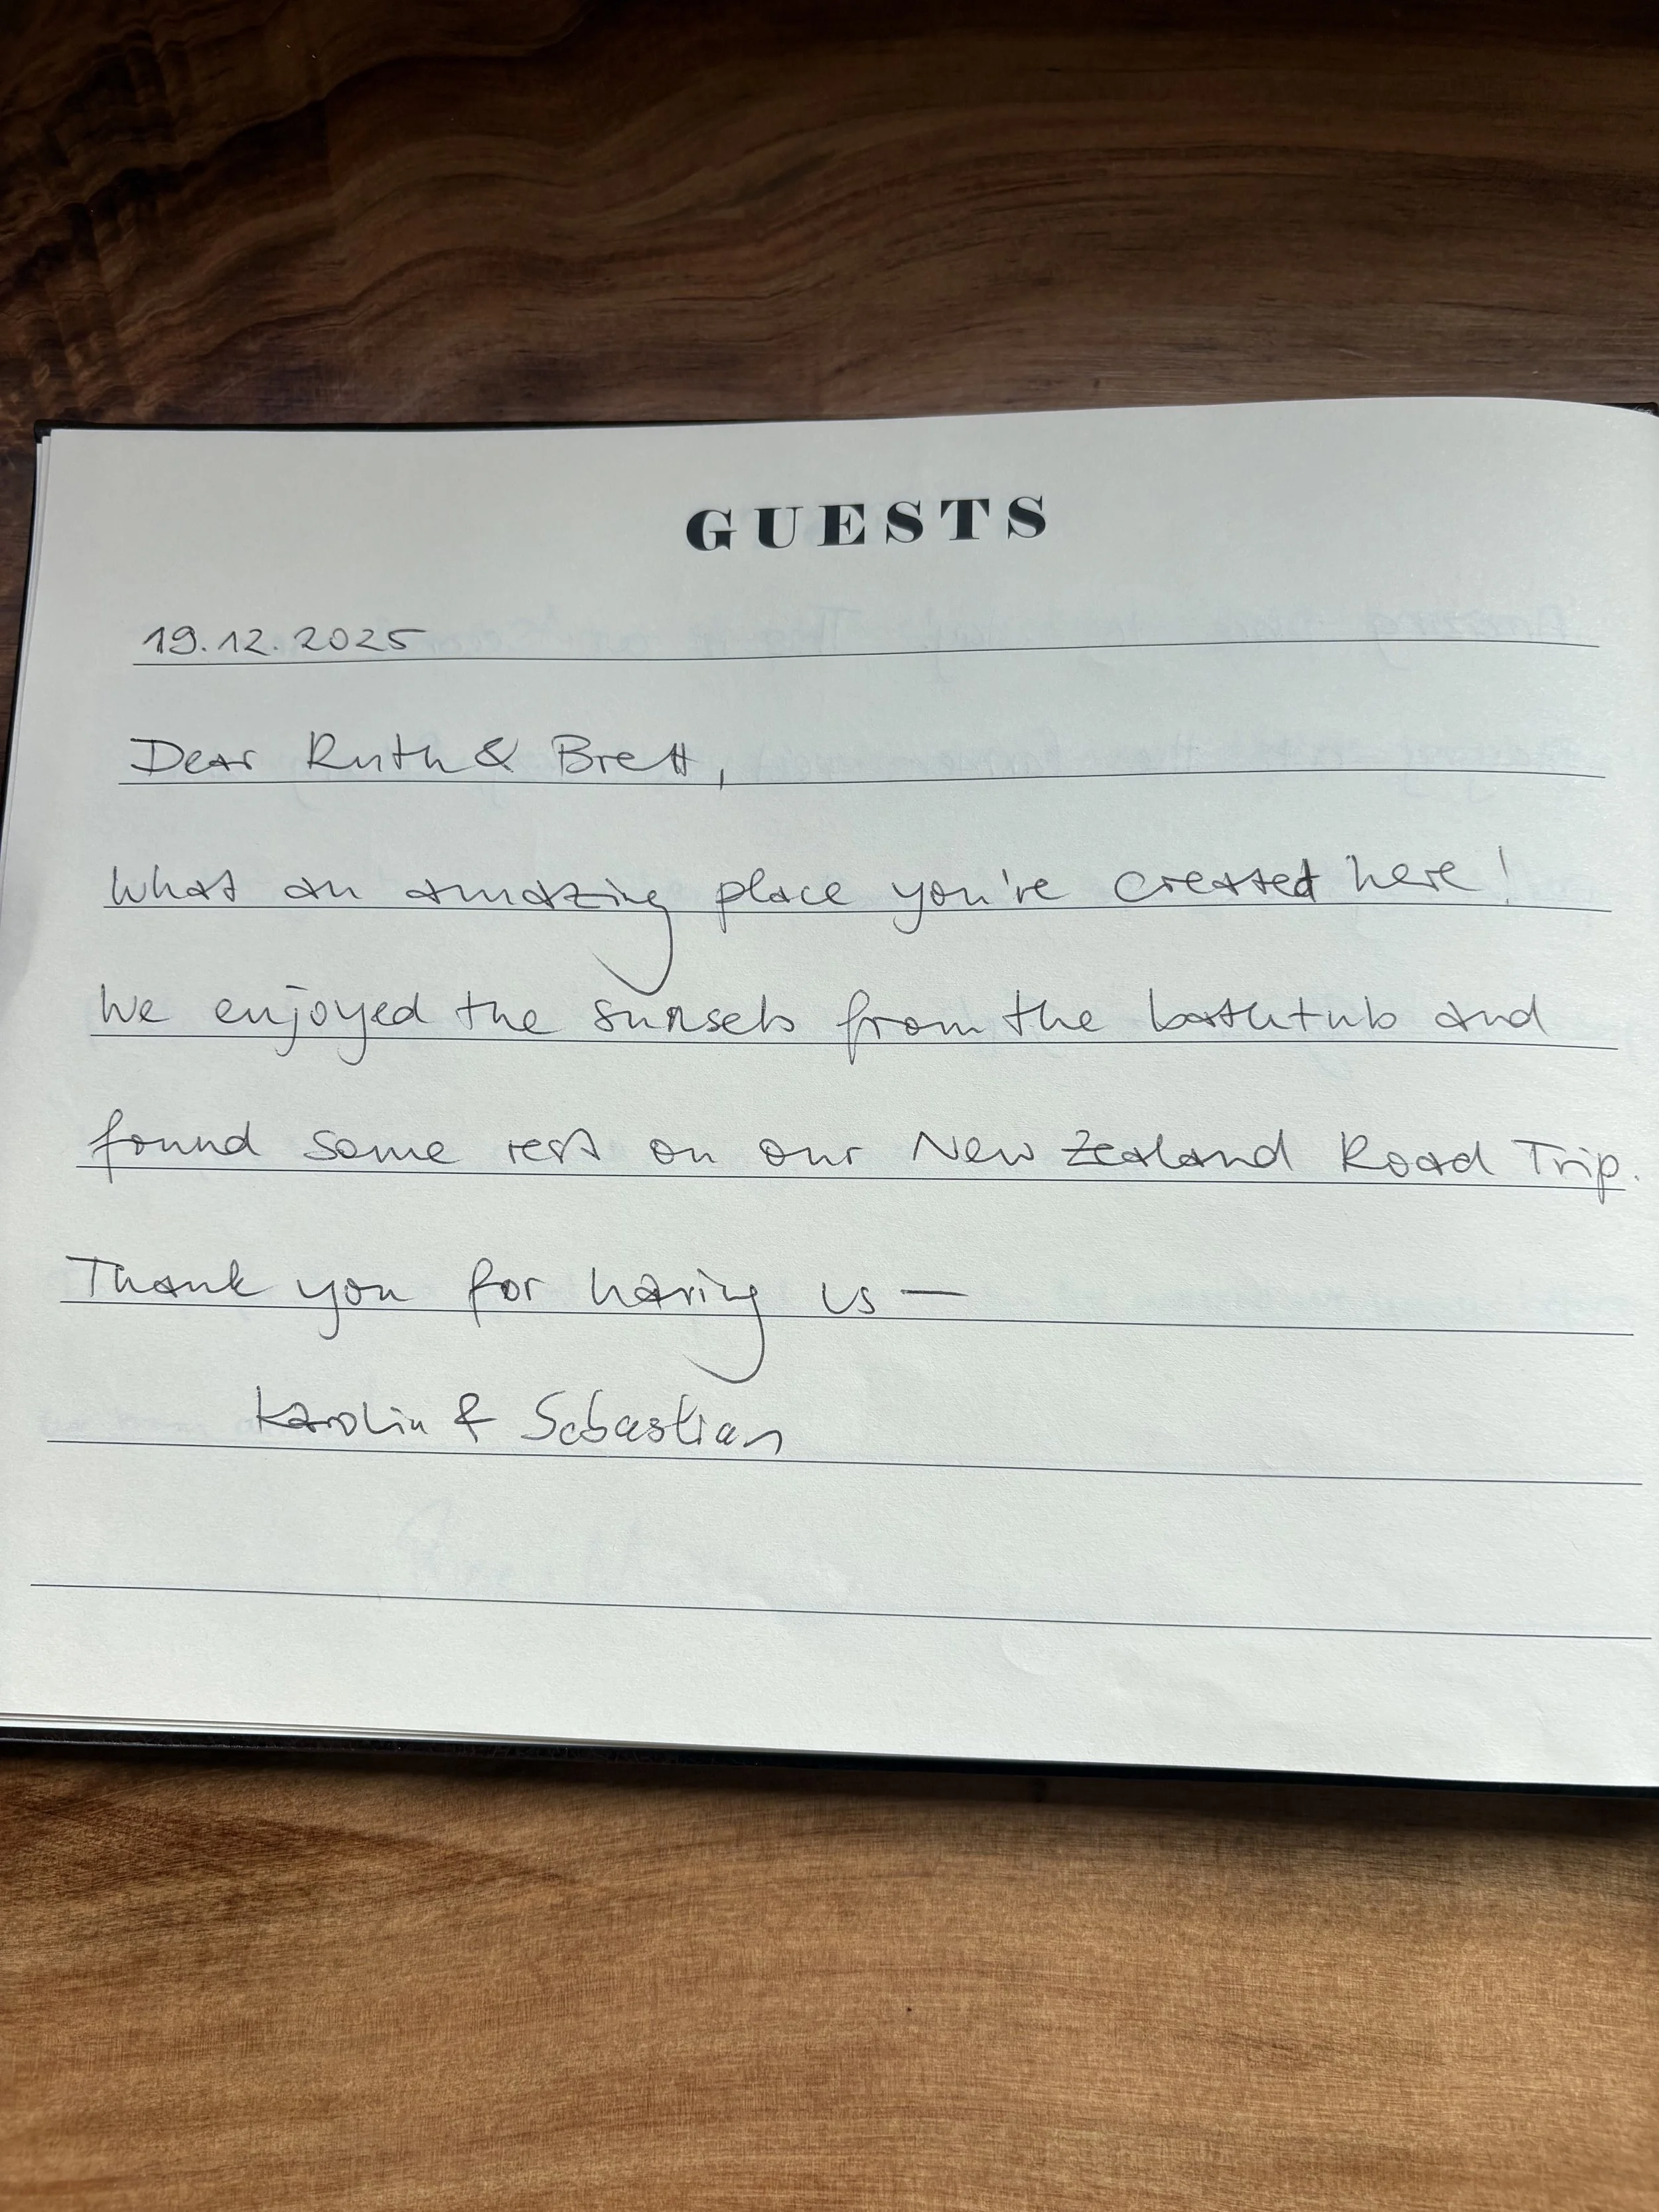 GUESTS
19.12.2025
Dear Ruth & Brett,
What an amazing place you're created here!
We enjoyed the sunsets from the bathtub and
found some rest on our New Zealand Road Trip.
Thank you for having us —
Karolin & Sebastian